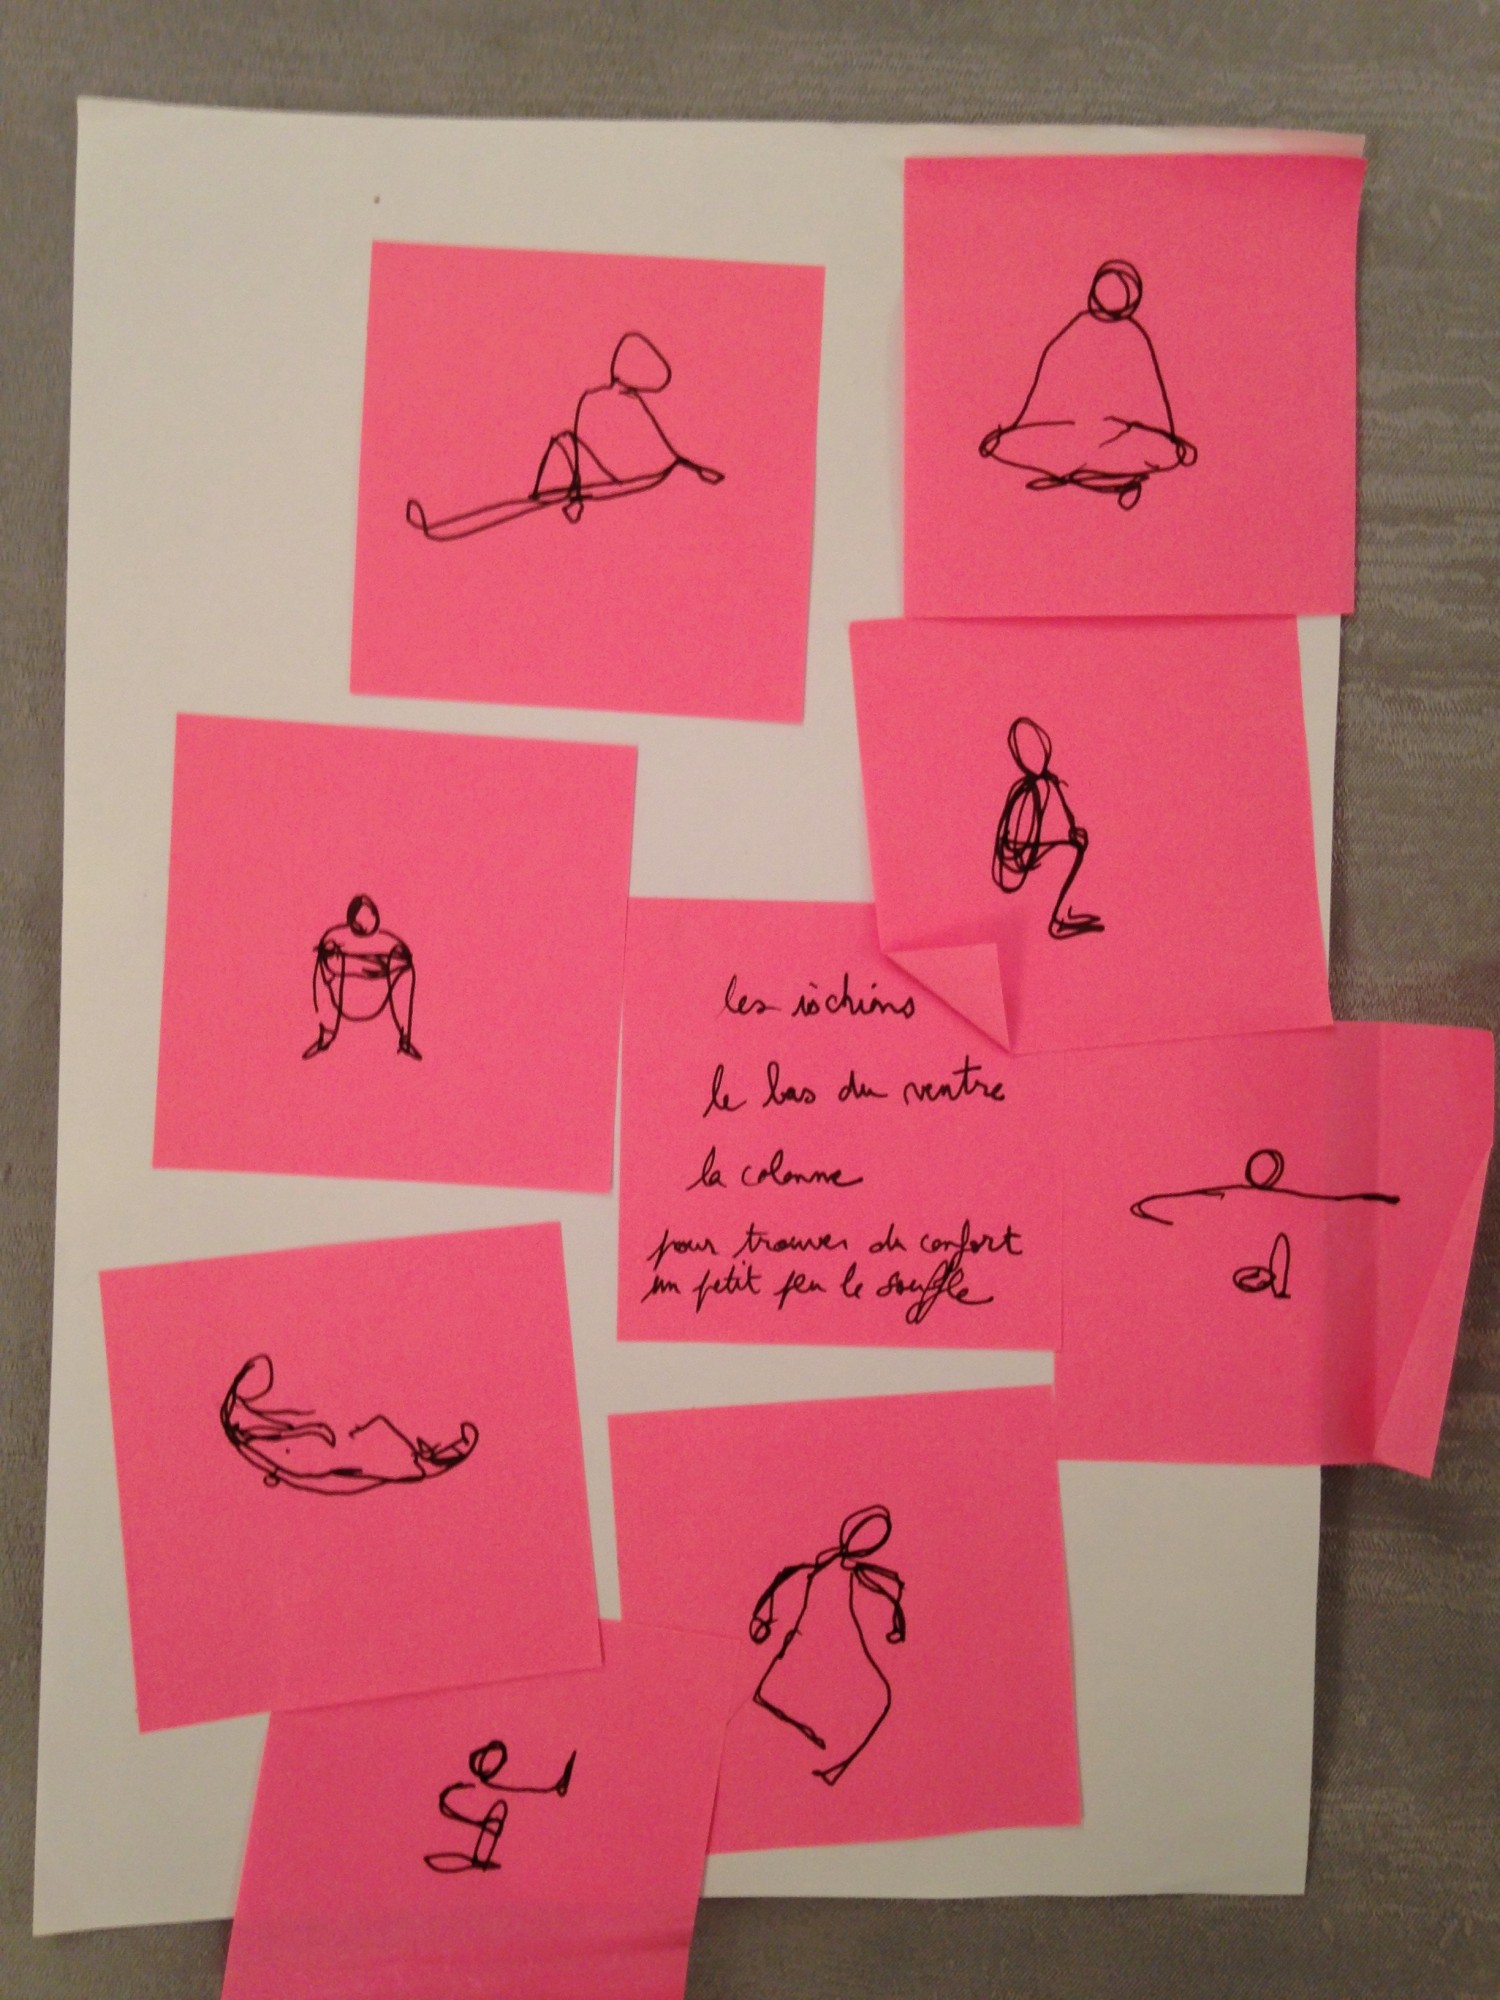 les ischions
le bas du ventre
la colonne
pour trouver du confort
un petit peu le souffle